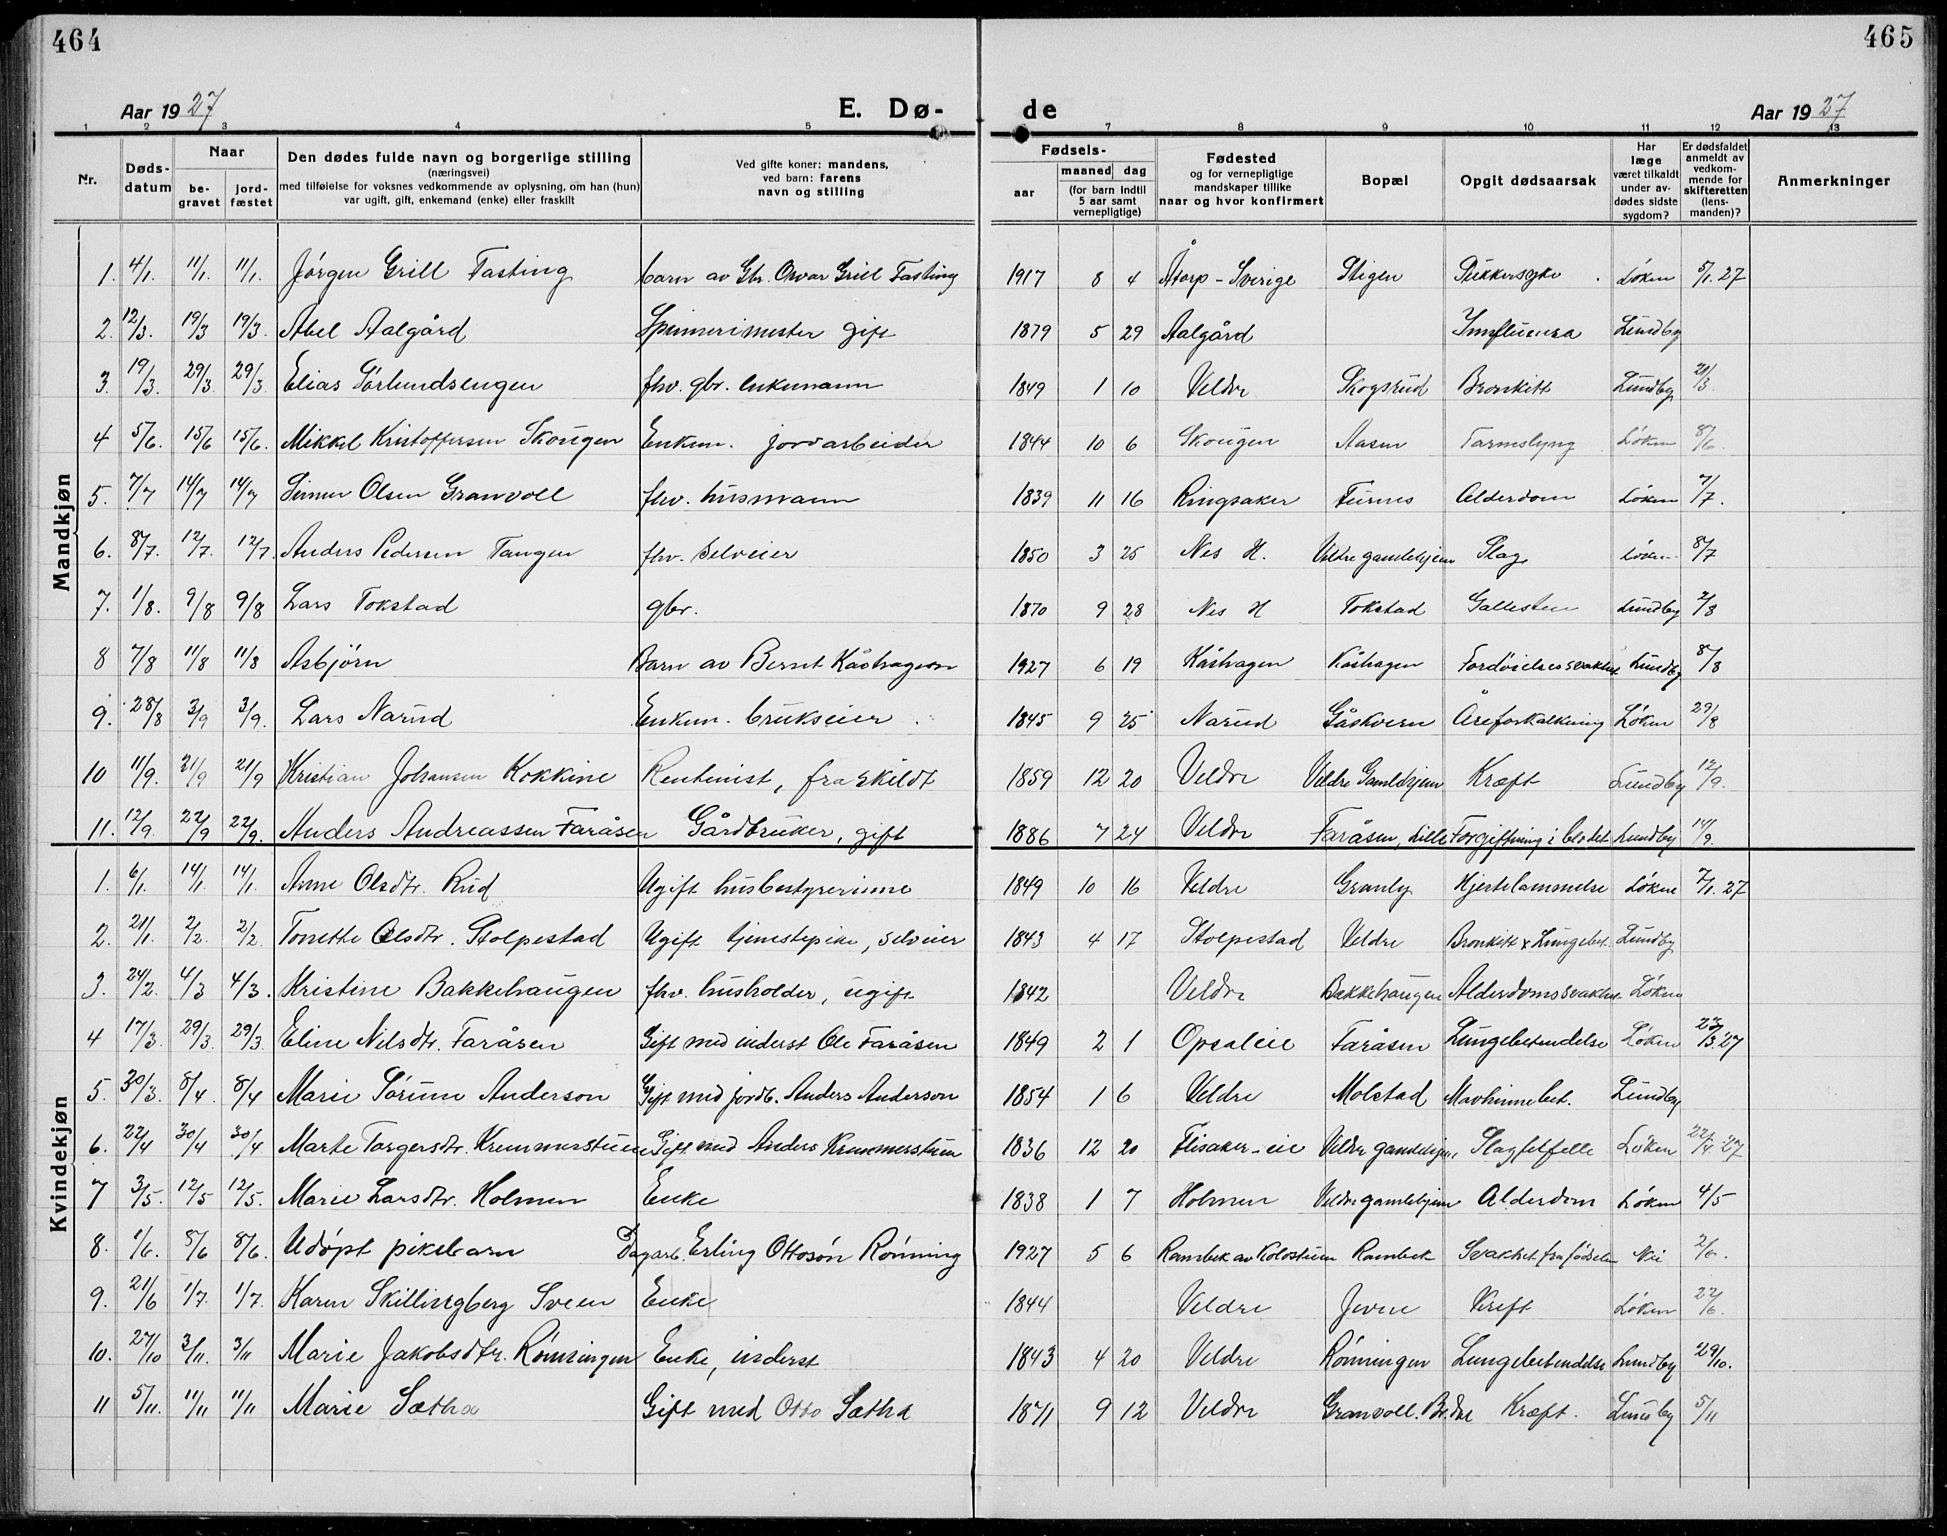 464
465
Aar 1927
E. Dø-
de
Aar 1927
1 2 3 4 5 7 8 9 10 11 12 13
Nr. Døds-datum Naar be-gravet jord-fæstet Den dødes fulde navn og borgerlige stilling (næringsvei) med tilføielse for voksnes vedkommende av oplysning, om han (hun) var ugift, gift, enkemand (enke) eller fraskilt Ved gifte koner: mandens, ved barn: farens navn og stilling Fødsels- aar maaned dag (for barn indtil 5 aar samt vernepligtige) Fødested og for vernepligtige mandskaper tillike naar og hvor konfirmert Bopæl Opgit dødsaarsak Har læge været tilkaldt under av-dødes sidste sygdom? Er dødsfaldet anmeldt av vedkom-mende for skifteretten (lens-manden)? Anmerkninger
Mandkjøn
1. 4/1. 11/1. 11/1. Jørgen Grill Fasting barn av Gbr. Grill Fasting 1917 8 4 Åtorp - Sverige Stigen Sukkersyke Løken 5/1. 27
2. 12/3. 19/3 19/3. Abel Aalgård Spinnerimester gift 1879 5 29 Aalgård Innfluensa Lundby
3. 19/3. 29/3 29/3. Elias Sørlundsengen fhv. gbr. enkemann 1849 1 10 Veldre Skogsrud Bronkitt Lundby 21/3
4 5/6. 15/6 15/6. Mikkel Kristoffersen Skougen Enkem. jordarbeider 1844 10 6 Skougen Aasen Tarmslyng Løken 8/6.
5. 7/7 14/7 14/7 Simen Olsen Granvoll fhv. husmann 1839 11 16 Ringsaker Furnes Alderdom Løken 7/7.
6. 8/7. 12/7. 12/7. Anders Pedersen Tangen fhv. Selveier 1850 3 25 Nes H. Veldre gamlehjem Slag Løken 8/7
7. 1/8. 9/8 9/8 Lars Tokstad gbr. 1870 9 28 Nes H Tokstad Gallesten Lundby 2/8
8 7/8 11/8 11/8 Asbjørn Barn av Bernt Kåshagen 1927 6 19 Kåshagen Kåshagen Fordøielsessvakhet Lundby 8/8
9. 28/8 3/9 3/9. Lars Narud Enkem. brukseier 1845 9 25 Narud Gåskvern Åreforkalkning Løken 29/8
10 11/9. 21/9 21/9 Kristian Johansen Kokkine Rentenist, fraskildt 1859 12 20 Veldre Veldre Gamlehjem Kræft Lundby 12/9.
11. 12/9. 22/9 22/9. Anders Andreassen Faråsen Gårdbruker, gift 1886 7 24 Veldre Faråsen, Lille Forgiftning i blodet Lundby 14/9.
Kvindekjøn
1. 6/1. 14/1. 14/1. Anne Olsdtr. Rud Ugift husbestyrerinne 1849 10 16 Veldre Granly Hjertelammelse Løken 7/1. 27
2. 21/1. 2/2. 2/2. Tonette Olsdtr. Stolpestad Ugift tjenestepike, selveier 1843 4 17 Stolpestad Veldre Bronkitt & Lungebet. Lundby
3. 24/2. 4/3 4/3. Kristine Bakkehaugen fhv. husholder, ugift 1842 Veldre Bakkehaugen Alderdomssvakhet Løken
4 17/3. 29/3. 29/3. Eline Nilsdtr. Faråsen Gift med inderst Ole Faråsen 1849 2 1 Opsaleie Faråsen Lungebetendelse Løken 27
5. 30/3. 8/4. 8/4 Marie Sørum Anderson Gift med jordb. Anders Anderson 1854 1 6 Veldre Molstad Mavhinnebet. Lundby
6. 22/4 30/4 30/4 Marte Torgersdtr. Kremmerstuen Gift med Anders Kremmerstuen 1836 12 20 Flisaker-eie Veldre gamlehjem Slagtilfelle Løken 22/4. 27
7 3/5. 12/5 12/5. Marie Larsdtr. Holmen Enke 1838 1 7 Holmen Veldre gamlehjem Alderdom Løken 4/5
8. 1/6. 8/6 8/6. Udøpt pikebarn Dagarb. Erling Ottosøn Rønning 1927 5 6 Rambek av Kolostuen Rambek Svakhet fra fødselen Nei 2/6.
9. 21/6 1/7. 1/7. Karen Skillingberg Sveen Enke 1844 Veldre Jevne Kreft Løken 22/6.
10. 27/10 3/11. 3/11 Marie Jakobsdtr. Rønningen Enke, inderst 1843 4 20 Veldre Rønningen Lungebetendelse Lundby 29/10.
11 5/11. 11/11 11/11 Marie Sætha Gift med Otto Sætha 1871 9 12 Veldre Granvoll. Kræft. Lundby 5/11